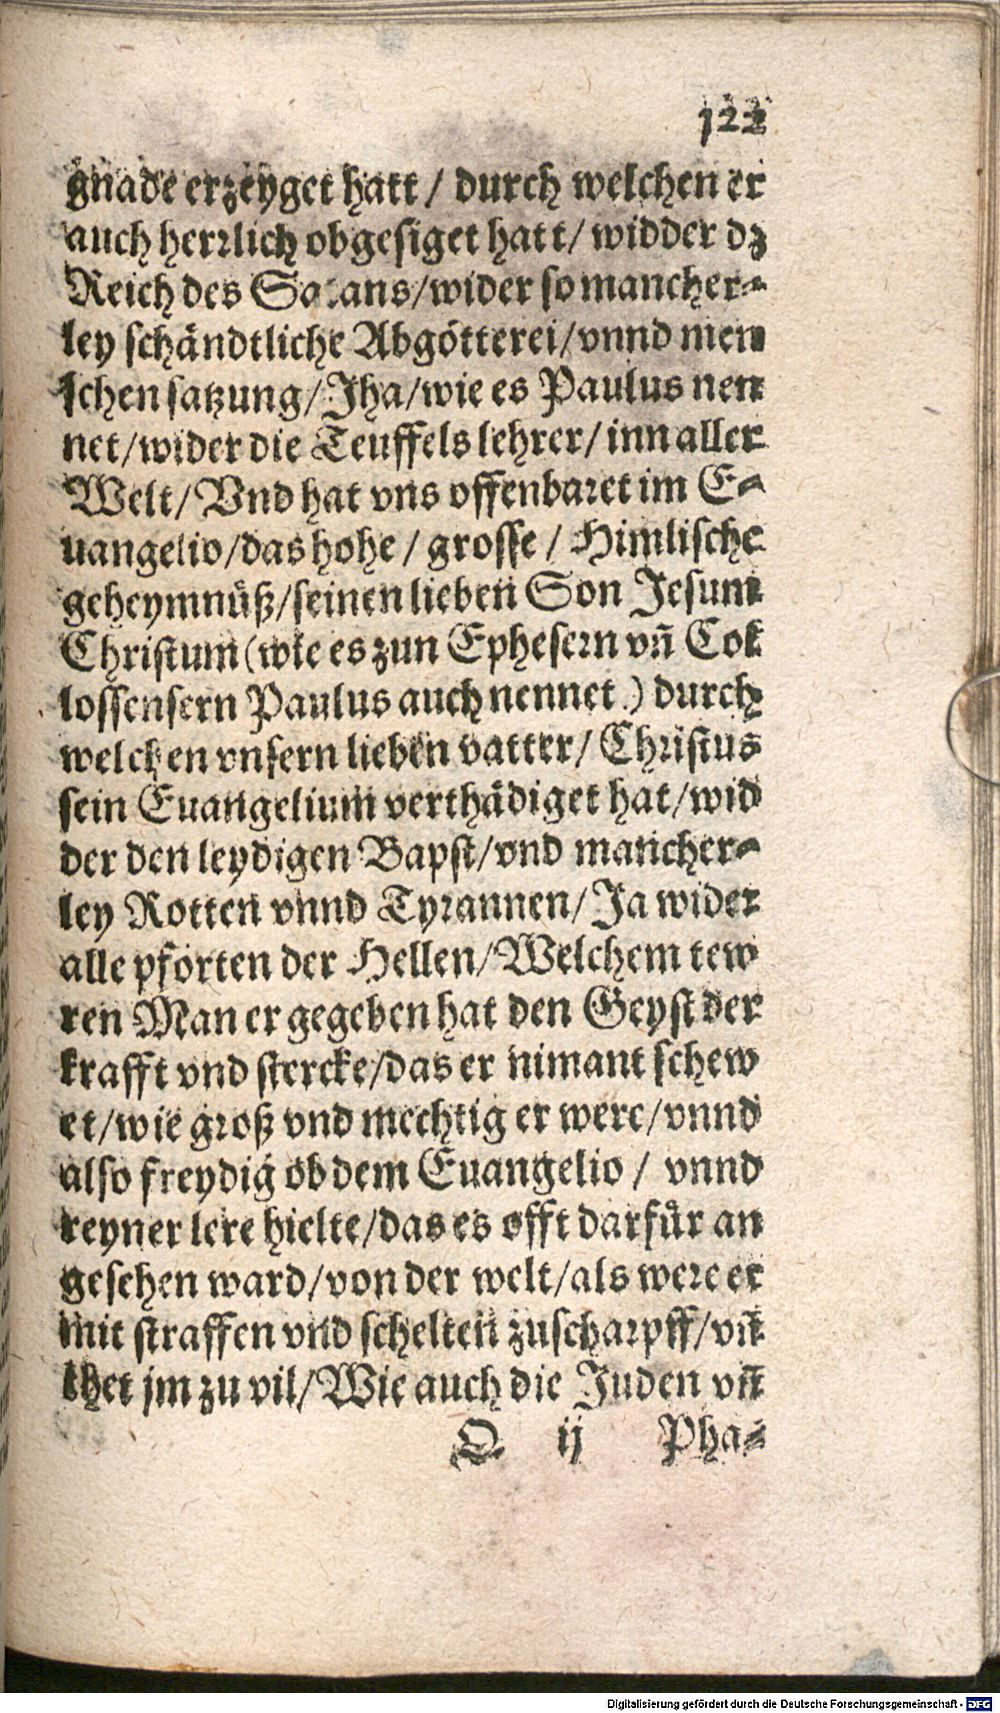 122
gnade erzeyget hatt / durch welchen er
auch herrlich obgesiget hatt/ widder dz
Reich des Satans/wider so mancher-
ley schändtliche Abgötterei/vnnd men
schen satzung/Jha/wie es Paulus nen
net/wider die Teuffels lehrer/ inn aller
Welt/ Vnd hat vns offenbaret im E-
uangelio/das hohe / grosse / Himlische
geheymnüß/seinen lieben Son Jesum
Christum (wie es zun Ephesern vñ Col
lossensern Paulus auch nennet.) durch
welchen vnsern lieben vatter/ Christus
sein Euangelium verthädiget hat/wid
der den leydigen Bapst/vnd mancher-
ley Rotten vnnd Tyrannen/Ja wider
alle pforten der Hellen/Welchem tew
ren Man er gegeben hat den Geyst der
krafft vnd stercke/das er nimant schew
et/wie groß vnd mechtig er were/vnnd
also freydig ob dem Euangelio / vnnd
reyner lere hielte/das es offt darfür an
gesehen ward/von der welt/als were er
mit straffen vnd schelten zuscharpff/vñ
thet jm zu vil/Wie auch die Juden vñ
Q ij Pha-
Digitalisierung gefördert durch die Deutsche Forschungsgemeinschaft - DFG